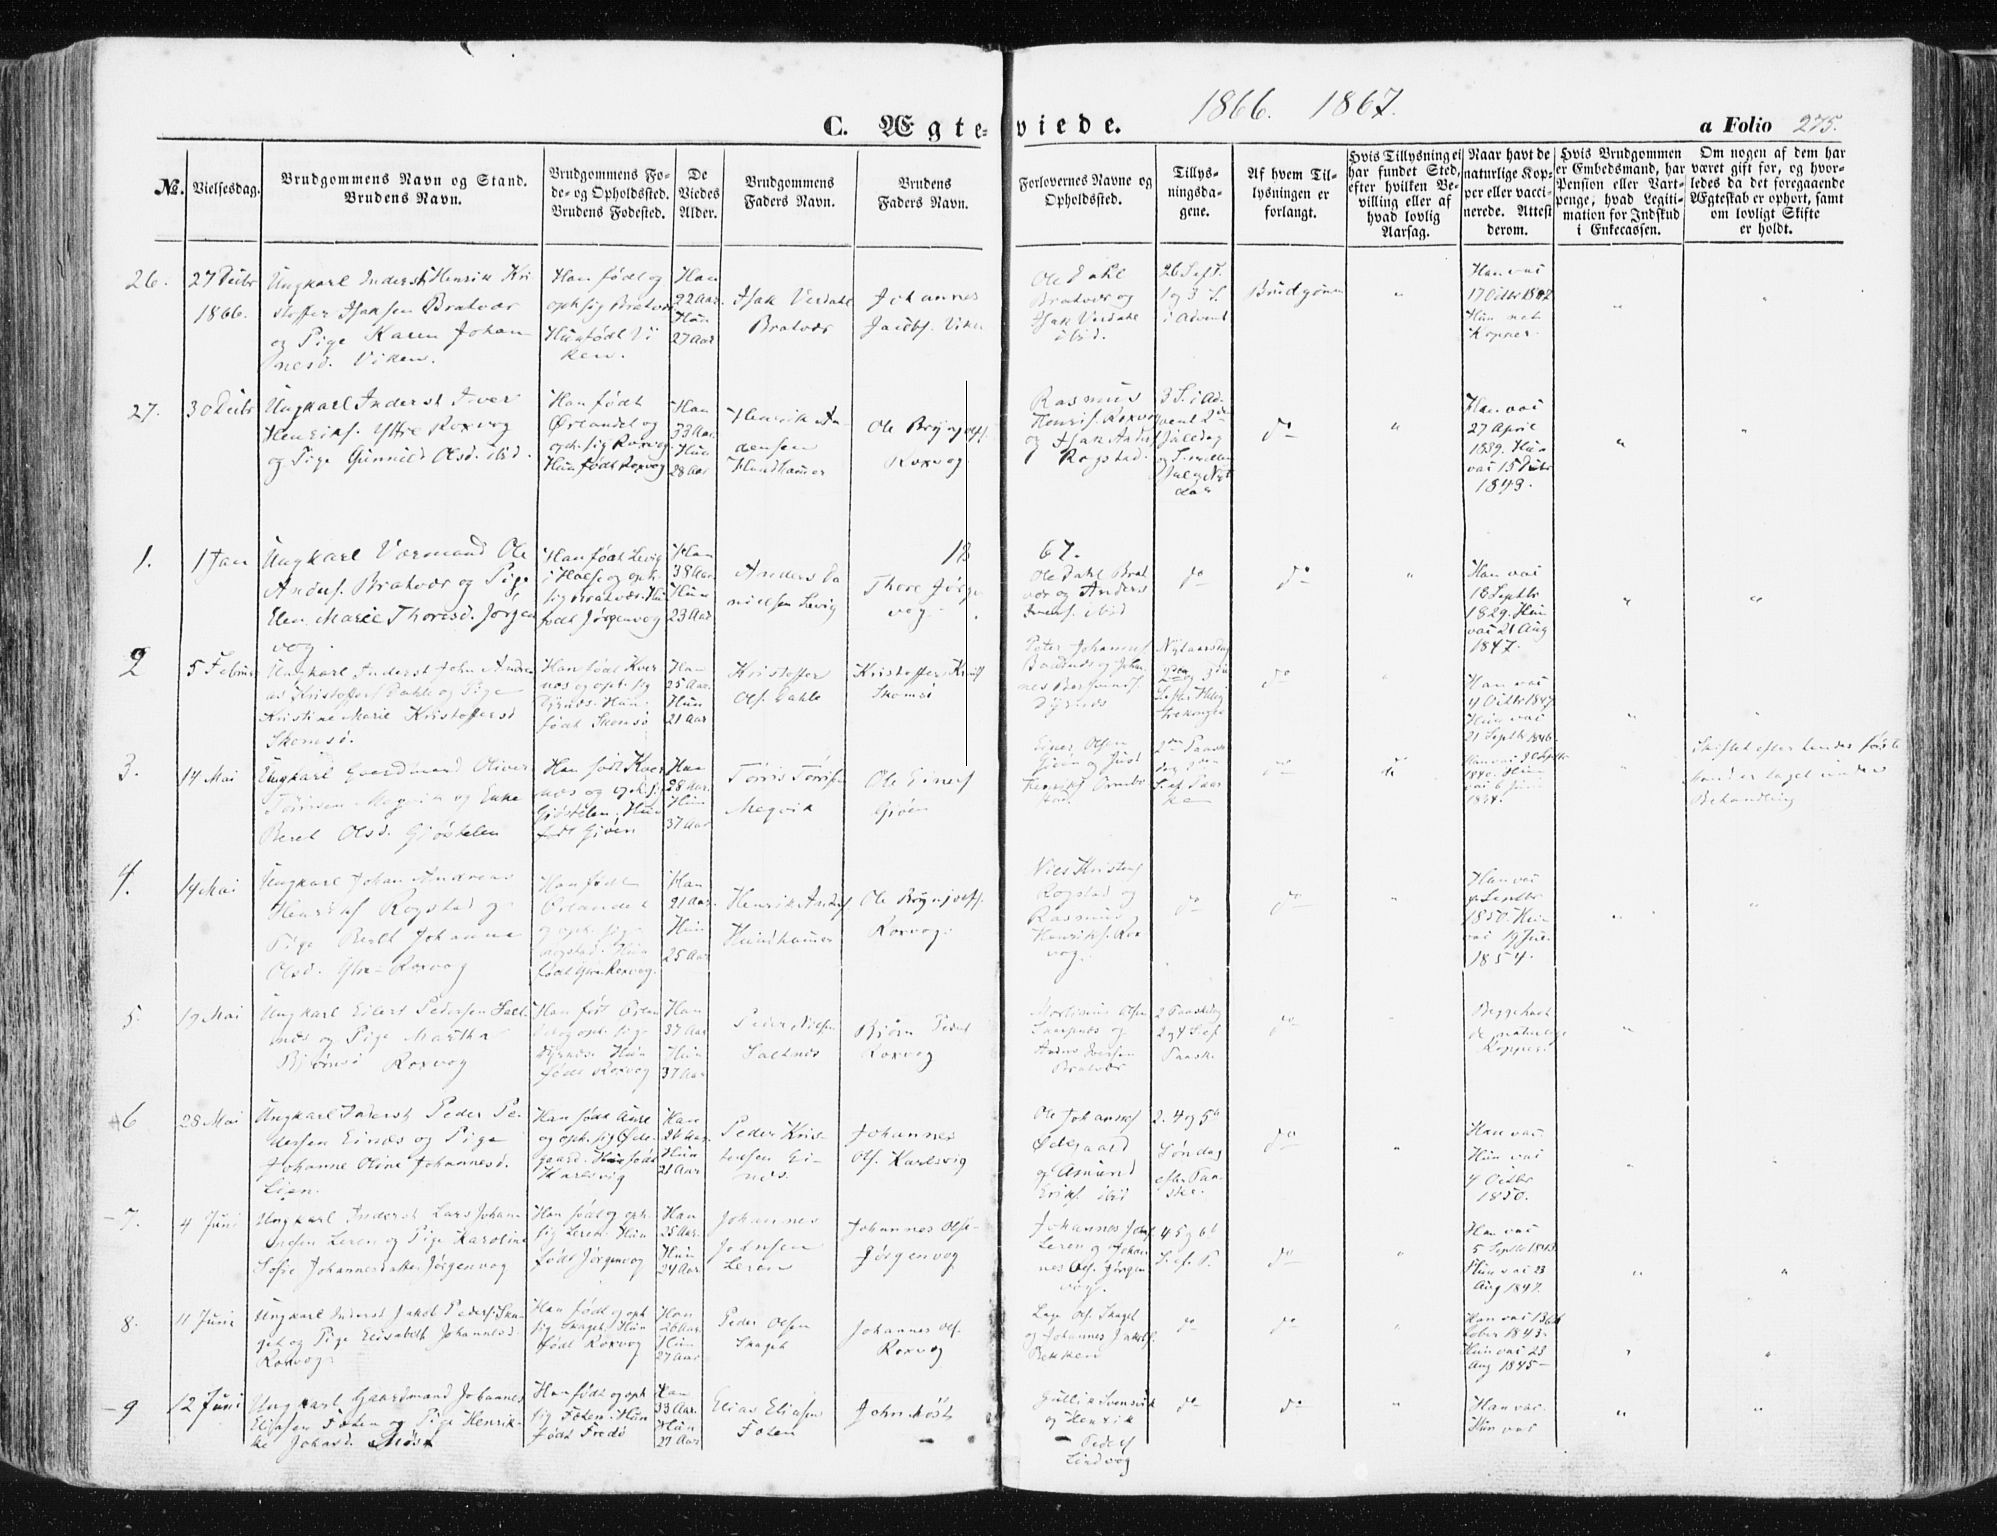 1866. 1867.
C. Ægteviede.
a Folio 275.
No.
Vielsesdag.
Brudgommens Navn og Stand.
Brudens Navn.
Brudgommens Fø-
de- og Opholdssted.
Brudens Fødested.
De
Viedes
Alder.
Brudgommens
Faders Navn.
Brudens
Faders Navn.
Forlovernes Navne og
Opholdssted.
Tillys-
ningsda-
gene.
Af hvem Til-
lysningen er
forlangt.
Hvis Tillysning ei
har fundet Sted,
efter hvilken Be-
villing eller af
hvad lovlig
Aarsag.
Naar havt de
naturlige Kop-
per eller vacci-
nerede. Attest
derom.
Hvis Brudgommen
er Embedsmand, har
Pension eller Vart-
penge, hvad Legiti-
mation for Indskud
i Enkecassen.
Om nogen af dem har
været gift før, og hvor-
ledes da det foregaaende
Ægteskab er ophørt, samt
om lovligt Skifte
er holdt.
26.
27 Decbr
1866.
Ungkarl Inderst Henrik Kri
stoffer Isaksen Bratvær
og Pige Karen Johan
nesd. Viken.
Han født og
oph. sig Bratvær
Hun født Vi
ken.
Han
22 Aar
Hun
27 Aar
Isak Verdahl
Bratvær
Johannes
Jacobs. Viken
Ole Dahl
Bratvær og
Isak Verdahl
ibid.
26 S. ef. T.
1 og 3 S.
i Advent
Brudgommen
Han vac
17 Octbr 1847
Hun nat
Kopper.
27.
30 Decbr
Ungkarl Inderst Iver
Henriks. Yttre Roxvog
og Pige Gunnild Olsd. ibid.
Han født
Ørlandet og
oph. sig Roxvog
Hun født Roxvog
Han
33 Aar
Hun
28 Aar
Henrik An-
densen
Hundhamer
Ole Brynjolfs.
Roxvog.
Rasmus
Henriks. Roxvog
og Isak Anders
Rogstad.
3 S. i Ad-
vent 2den
Juledag
og S. mellem
Jul og Nyt
aar
do
Han vac
27 April
1839. Hun
vac 15 Decbr
1843.
1867.
1.
1 Jan
Ungkarl Værmand Ole
Anders. Bratvær og Pige
Elen Marie Thoresd. Jørgen
vog.
Han født Levig
i Halse og oph.
sig Bratvær. Hun
født Jørgenvog
Han
38 Aar
Hun
23 Aar
Anders Da
nielsen Levig
Thore Jørgen
vog.
Ole Dahl Brat
vær og Anders
Ivers. ibid
do
do
Han vac
18 Septbr
1829. Hun
vac 21 Aug
1847.
2
5 Februar
Ungkarl Inderst John Andre
as Kristoffers. Dahle og Pige
Kristine Marie Kristoffersd
Skomsø.
Han født Kver
næs og oph. sig
Dyrnæs. Hun
født Skomsø
Han
25 Aar.
Hun
21 Aar
Kristoffer
Ols. Dahle
Kristoffer
Skomsø
Peter Johannes
og Johan
nes
Dyrnæs
Nytaarsdag
do
Han vac
4 Octbr 1847
Hun vac
21 Septbr 1846
3.
14 Mai
Ungkarl Gaardmand Oliver
Tørrisen Megvik og Enke
Beret Olsd. Gjøstelen
Han født Kver
næs og oph. sig
Gjøstelen. Hun
født Giøen
Han
28 Aar
Hun
37 Aar
Tørris Tørrisen
Megvik
Ole Einers
Giøen
Einer Olsen
Giøen og
do
Skiftet efter hendes første
Mand er taget under
Behandling
4.
14 Mai
Ungkarl Johan Andreas
Henriks Rogstad og
Pige Beret Johanna
Olsd. Ytre Roxvog
Han født
Ørlandet
og oph. sig
Rogstad. Hun
født Ytre Roxvog.
Han
21 Aar.
Hun
25 Aar
Henrik Anders
Hundhamer
Ole Brynjolfs.
Roxvog.
Niels Kristens
Rogstad og
Rasmus
Henriks. Rox
vog.
do
do
Han vac
Septbr
1850. Hun
vac 19 Jul.
1854.
5.
19 Mai
Ungkarl Eilert Pedersen Salt
næs og Pige Martha
Bjørnsd Roxvog
Han født Ørlan
det og oph. sig
Dyrnæs. Hun
født Roxvog
Han
37 Aar
Hun
37 Aar
Peder Nielsen
Saltnæs
Bjørn Peders
Roxvog
Olsen
og
Anders Iversen
Bratvær
2 Paaskedag
2 og 4 S. ef.
Paask.
do
Begge havt
de naturlige
Kopper.
6
28 Mai
Ungkarl Inderst Peder Pe-
dersen Einæs og Pige
Johanne Oline Johannesd.
Lien.
Han født Aure
og oph. sig Øde-
gaard. Hun født
Karlsvig
Han
26 Aar.
Hun
21 Aar
Peder Kris-
tensen Ei-
næs.
Johannes
Ols. Karlsvig
Ole Johannes
Ødegaard
og Amund
Eriks. ibid
2. 4 og 5te
Søndag
efter Paa-
ske.
do
Han vac.
Hun vac
4 Octbr
1850.
7.
4 Juni
Ungkarl Inderst Lars Johan-
nesen Leren og Pige Karoline
Sofie Johannesdatter Jørgenvog
Han født og oph.
sig Leren. Hun
født Jørgenvog
Han
25 Aar.
Hun
24 Aar
Johannes
Johnsen
Leren
Johannes Olsen
Jørgenvog
Johannes Johns
Leren og Johan
nes Ols. Jørgen
vog.
4 5 og 6te
S. ef. P.
do
Han vac
5 Septbr 1843.
Hun vac 23
Aug 1847.
8.
11 Juni
Ungkarl Inderst Jakob Peders. Ska-
get og Pige Elisabeth Johannesd.
Roxvog.
Han født og oph
sig Skaget. Hun
født Roxvog
Han
26 Aar.
Hun
27 Aar
Peder Olsen
Skaget
Johannes Ols.
Roxvog
Lars Ols. Skaget
og Johannes Jakobs.
Bekken
do
do
Han vac 13 Ok
tober 1843.
Hun vac 23
Aug 1845
9
12 Juni
Ungkarl Gaardmand Johannes
Eliasen Foten og Pige Henrik-
ke Johnsd. Møst
Han født og oph
sig Foten. Hun
født Fredø
Han
33 Aar.
Hun
27 Aar
Elias Eliasen
Foten
John Møst
Gullik Svensvik
og Henrik
Peders
Lindvog
do
do
Han vac.
Hun vac